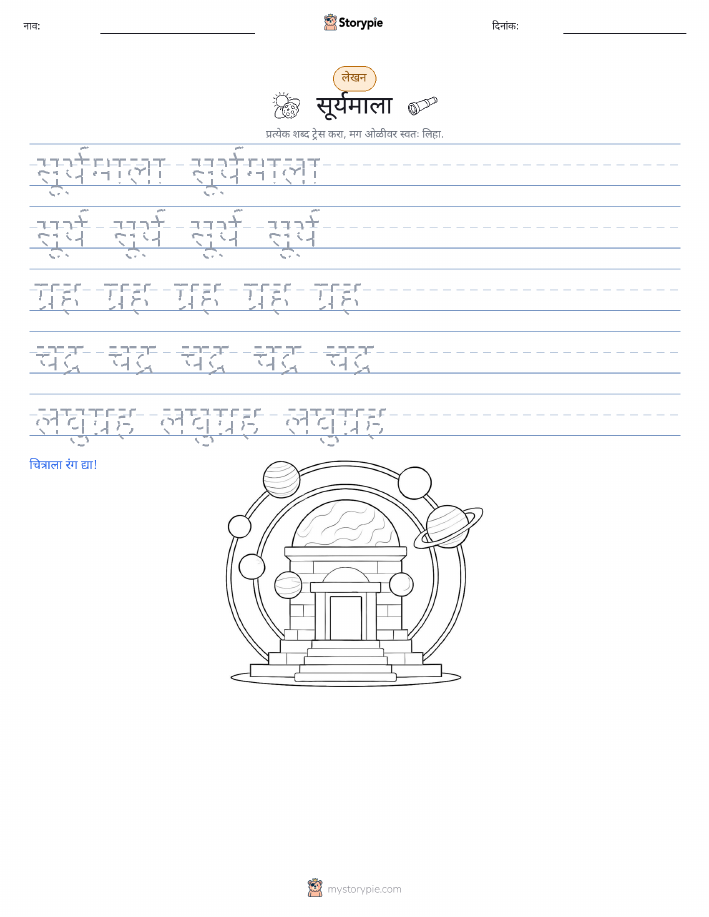 नाव: Storypie दिनांक:
लेखन
सूर्यमाला
प्रत्येक शब्द ट्रेस करा, मग ओळीवर स्वतः लिहा.
सूर्यमाला सूर्यमाला
सूर्य सूर्य सूर्य सूर्य
ग्रह ग्रह ग्रह ग्रह ग्रह
चंद्र चंद्र चंद्र चंद्र चंद्र
लघुग्रह लघुग्रह लघुग्रह
चित्राला रंग द्या!
mystorypie.com